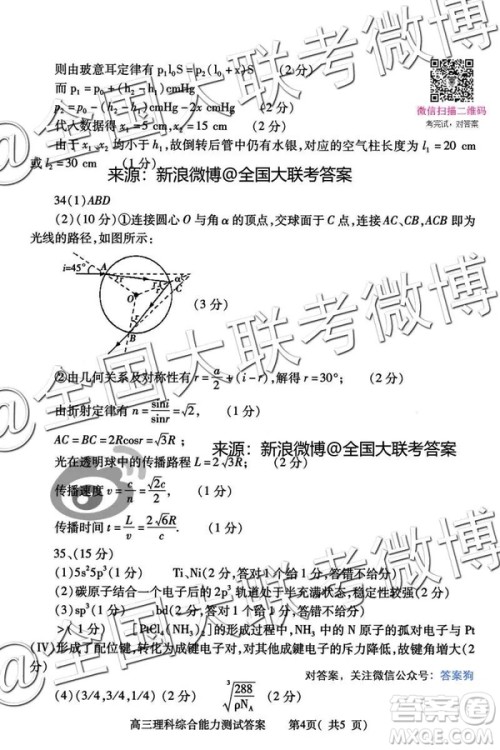 则由玻意耳定律有p₁l₀S=p₂(l₀+x)S (2分)
而p₁=p₀+(h₂-h₁)cmHg
p₂=p₀-(h₂-h₁)cmHg-2x cmHg (2分)
代入数据得x₁=5 cm,x₂=15 cm (2分)
由于x₁、x₂均小于h₁,故倒转后管中仍有水银,对应的空气柱长度为l₁=20 cm
或l₂=30 cm (1分)
微信扫描二维码
考完试,对答案
来源:新浪微博@全国大联考答案
34(1)ABD
(2)(10分)①连接圆心O与角α的顶点,交球面于C点,连接AC、CB,ACB即为
光线的路径,如图所示:
i=45°
A
r
α
C
O
B
(3分)
②由几何关系及对称性有r=α/2+(i-r),解得r=30°; (2分)
由折射定律有n=sini/sinr=√2, (1分)
AC=BC=2Rcosr=√3R;
来源:新浪微博@全国大联考答案
光在透明球中的传播路程L=2√3R; (2分)
传播速度v=c/n=√2c/2, (1分)
传播时间t=L/v=2√6R/c. (1分)
35、(15分)
(1)5s²5p³(1分) Ti、Ni(2分,答对1个给1分,答错不给分)
(2)碳原子结合一个电子后的2p³轨道处于半充满状态,稳定性较强(2分)
(3)sp³(1分) bd(2分,答对1个给1分,答错不给分)
>(1分) [PtCl₄(NH₃)₂]的形成过程中,NH₃中的N原子的孤对电子与Pt
(Ⅳ)形成了配位键,转化为成键电子对,对其他成键电子的斥力减小,键角增大(2
分)
对答案,关注微信公众号:答案狗
(4)(3/4,3/4,1/4)(2分) ³√288/ρN_A(2分)
高三理科综合能力测试答案 第4页(共5页)
@全国大联考微博
@全国大联考微博
@全国大联考微博